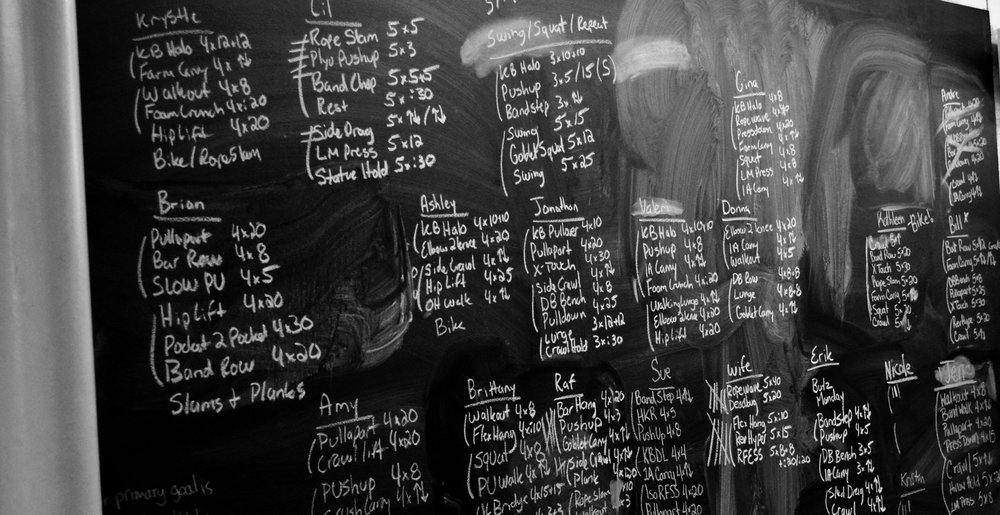 Krystle
KB Halo 4x12+12
Farm Carry 4x↑↓
Walkout 4x8
Foam Crunch 4x:20
Hip Lift 4x20
Bike/Rope Slam
Lil
Rope Slam 5x5
Plyo Pushup 5x3
Band Chop 5x5+5
Rest 5x:30
Side Drag 5x↑↓/↑↓
LM Press 5x12
Statue Hold 5x:30
Swing/Squat/Repeat
KB Halo 3x10+10
Pushup 3x5/15(S)
Bandstep 3x↑↓
Swing 5x15
Goblet Squat 5x12
Swing 5x25
Gina
KB Halo 4x8
Ropewave 4x40
Pressdown 4x20
Farm Carry 4x↑↓
Squat 4x8
LM Press 4x8
1A Carry 4x↑↓
Andre
Farm Carry
Crawl
1A Carry 4x↑↓
Brian
Pullapart 4x20
Bar Row 4x8
Slow PU 4x5
Hip Lift 4x20
Pocket 2 Pocket 4x30
Band Row 4x20
Slams + Planks
Ashley
KB Halo 4x10+10
Elbow 2 Knee 4x20
Side Crawl 4x↑↓
Hip Lift 4x25
OH Walk 4x↑↓
Bike
Jonathon
KB Pullover 4x10
Pullapart 4x20
X-Touch 4x30
Side Crawl 4x↑↓
DB Bench 4x8
Pulldown 4x25
Lunge 3x12+12
Crawl Hold 3x:30
KB Halo 4x10+10
Pushup 4x8
1A Carry 4x↑↓
Foam Crunch 4x:20
Walking Lunge 4x↑↓
Elbow 2 Knee 4x20
Hip Lift 4x20
Donna
Elbow 2 Knee 4x20
1A Carry 4x↑↓
Walkout 4x5
DB Row 4x8+8
Lunge 4x8+8
Goblet Carry 4x↑↓
Kathleen Bike!
Band Row 5x20
X Touch 5x30
Rope Slam 5x20
Farm Carry 5x↑↓
Squat 5x20
Crawl 5x↑↓
Bill*
Farm Carry 5x↑↓
Pullapart 5x25
X Touch 5x30
Crawl 5x↑↓
Amy
Pullapart 4x20
Crawl/1A 4x20
Pushup 4x8
Crush Carry 4x↑↓
Brittany
Walkout 4x8
Flex Hang 4x:10
Squat 4x8
PU Walk 4x↑↓
KBridge 4x15+15
Raf
Bar Hang 4x20
Pushup
Goblet Carry 4x↑↓
Side Crawl 4x↑↓
Plank
Rope Slam
Walkout
Sue
Band Step 4x↑↓
HKR 4x5
Pushup 4x8
KBDL 4x4
1A Carry 4x↑↓
Iso RFESS 4x20
Pullapart 4x20
Wife
Ropewave 5x40
Deadbug 5x20
Flex Hang 5x:10
Rev Hyper 5x15
RFESS 5x8+8
+:30/:20
Erik
Butz
Munday
Bandstep 4x↑↓
Pushup 4x5
DB Bench 3x5
1A Carry 3x↑↓
Sled Drag 4x↑↓
Crawl 4x↑↓
Nicole
Kristin
Jene
Walkout 4x10
Band Walk 4x↑↓
Pullapart 4x20
Press Down 4x15
Crawl 5x↑↓
Hollow Hold 5x
LM Press 5x8
primary goal is